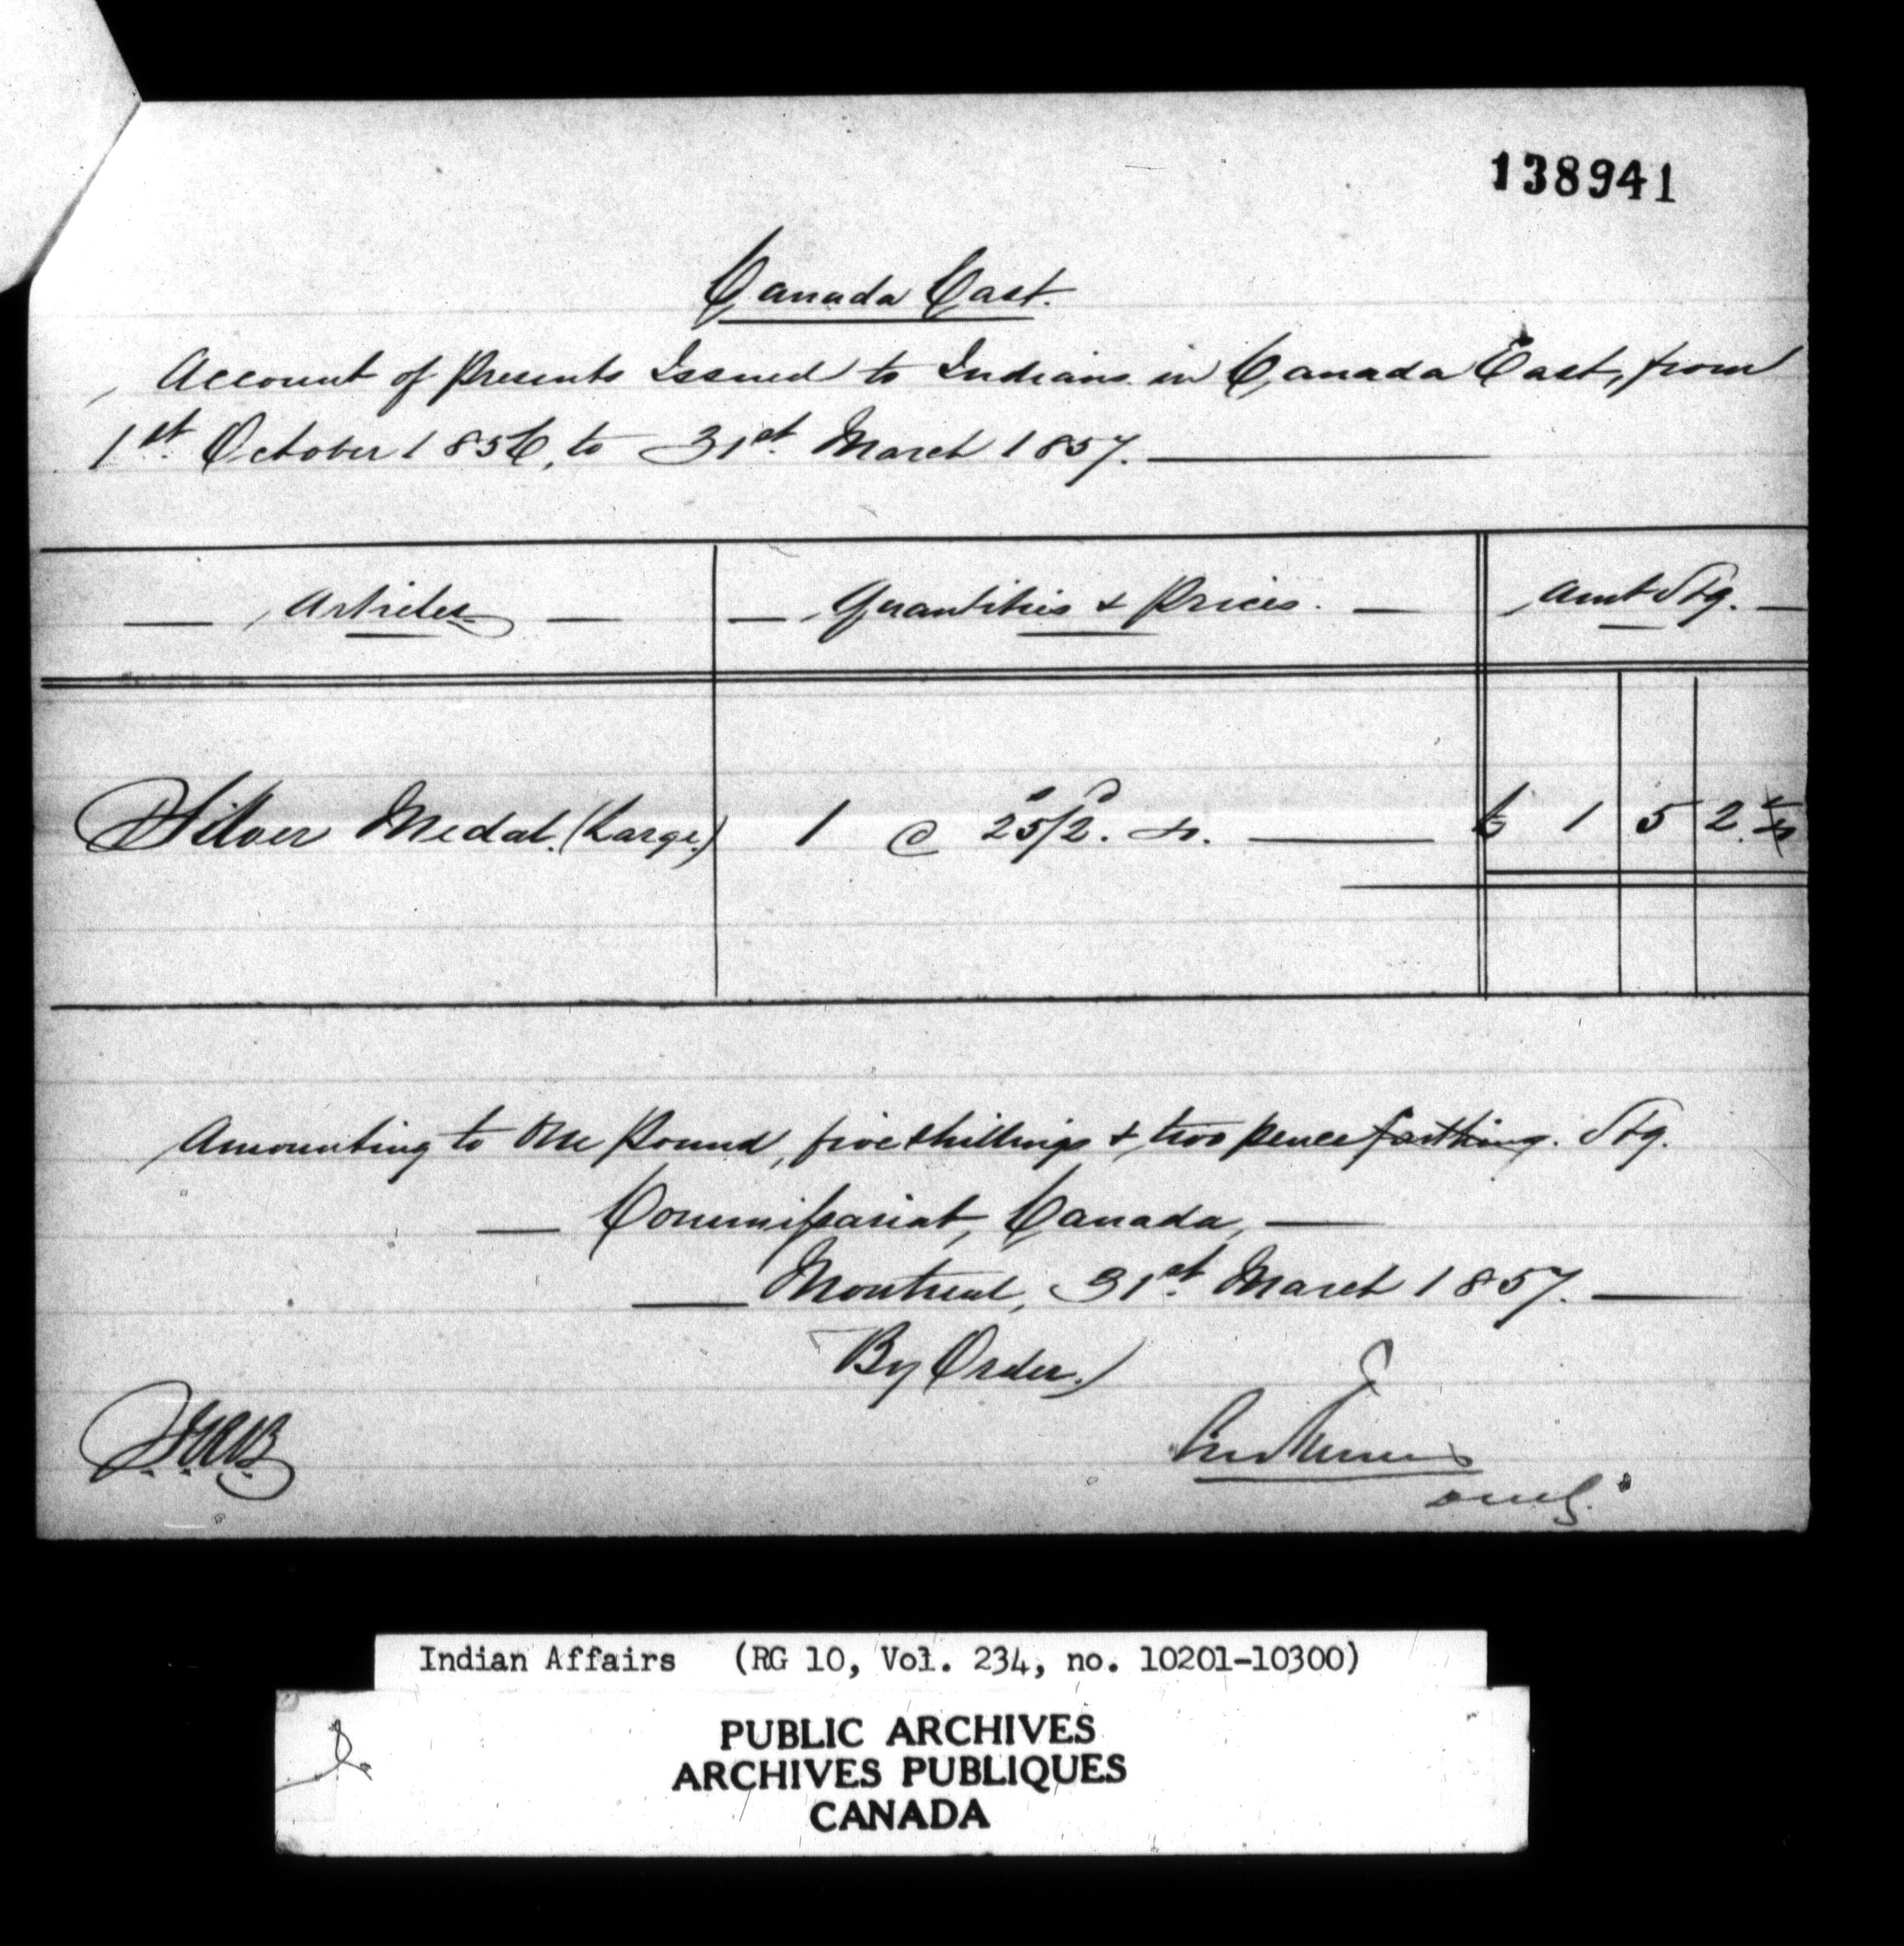 138941
Canada East.
Account of Presents Issued to Indians in Canada East, from
1st. October 1856, to 31st. March 1857.
Articles
Quantities & Prices.
Amt Stg.
Silver Medal. (Large.) 1 @ 25s/2d. £ 1 5 2.
Amounting to One Pound, five shillings & two pence farthing. Stg.
Commissariat, Canada,
Montreal, 31st. March 1857.
By Order.
Indian Affairs (RG 10, Vol. 234, no. 10201-10300)
PUBLIC ARCHIVES
ARCHIVES PUBLIQUES
CANADA